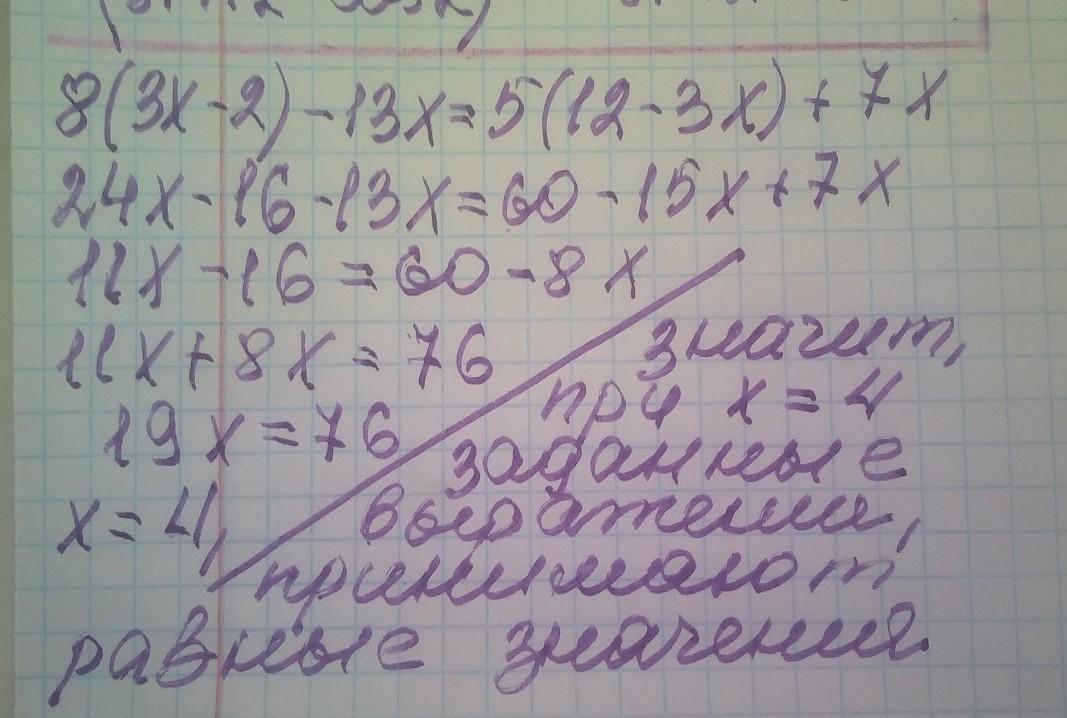 8(3x-2)-13x=5(12-3x)+7x
24x-16-13x=60-15x+7x
11x-16=60-8x
11x+8x=76
19x=76
x=4,
значит,
при x=4
заданные
выражения,
принимают
равные значения.